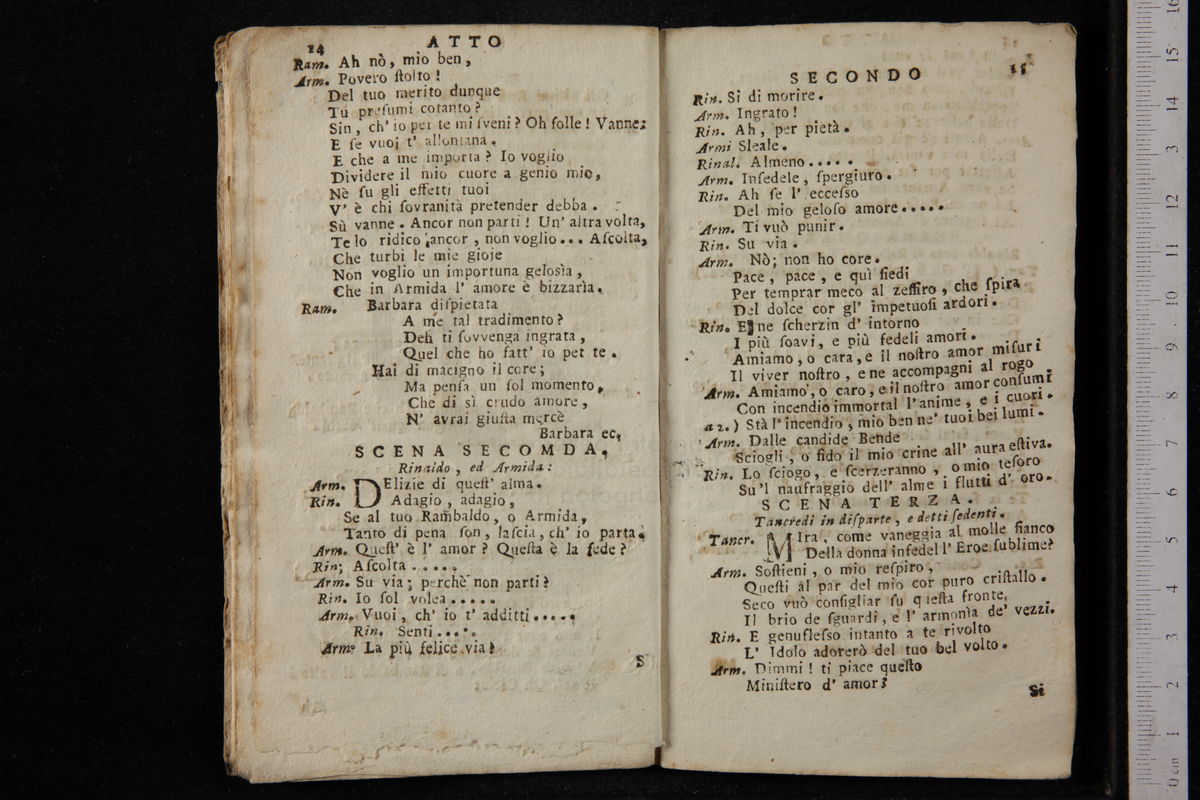 14
ATTO
Ram. Ah nò, mio ben,
Arm. Povero ſtolto!
Del tuo merito dunque
Tu preſumi cotanto?
Sin, ch' io per te mi ſveni? Oh folle! Vanne:
E ſe vuoi t' allontana.
E che a me importa? Io voglio
Dividere il mio cuore a genio mio,
Nè ſu gli effetti tuoi
V' è chi ſovranità pretender debba.
Sù vanne. Ancor non parti! Un' altra volta,
Te lo ridico ancor, non voglio... Aſcolta,
Che turbi le mie gioje
Non voglio un importuna geloſìa,
Che in Armida l' amore è bizzarìa.
Ram. Barbara diſpietata
A me tal tradimento?
Deh ti ſovvenga ingrata,
Quel che ho fatt' io pet te.
Hai di macigno il core;
Ma penſa un ſol momento,
Che di sì crudo amore,
N' avrai giuſta mercè
Barbara ec,
SCENA SECOMDA,
Rinaldo, ed Armida:
Arm. DElizie di queſt' alma.
Rin. Adagio, adagio,
Se al tuo Rambaldo, o Armida,
Tanto di pena ſon, laſcia, ch' io parta.
Arm. Queſt' è l' amor? Queſta è la fede?
Rin; Aſcolta.....
Arm. Su via; perchè non parti?
Rin. Io ſol volea.....
Arm. Vuoi, ch' io t' additti.....
Rin. Senti.....
Arm. La più felice via?
S
SECONDO
15
Rin. Sì di morire.
Arm. Ingrato!
Rin. Ah, per pietà.
Armi Sleale.
Rinal. Almeno.....
Arm. Infedele, ſpergiuro.
Rin. Ah ſe l' ecceſso
Del mio geloſo amore.....
Arm. Ti vuò punir.
Rin. Su via.
Arm. Nò; non ho core.
Pace, pace, e quì ſiedi
Per temprar meco al zeffiro, che ſpira
Del dolce cor gl' impetuoſi ardori.
Rin. E ne ſcherzin d' intorno
I più ſoavi, e più fedeli amori.
Amiamo, o cara, e il noſtro amor miſuri
Il viver noſtro, e ne accompagni al rogo.
Arm. Amiamo, o caro, e il noſtro amor conſumi
Con incendio immortal l'anime, e i cuori.
a 2.) Stà l'incendio, mio ben ne' tuoi bei lumi.
Arm. Dalle candide Bende
Sciogli, o fido il mio crine all' aura eſtiva.
Rin. Lo ſciogo, e ſcerzeranno, o mio teſoro
Su'l naufraggio dell' alme i flutti d' oro.
SCENA TERZA.
Tancredi in diſparte, e detti ſedenti.
Tancr. MIra, come vaneggia al molle fianco
Della donna infedel l' Eroe ſublime?
Arm. Soſtieni, o mio reſpiro,
Queſti al par del mio cor puro criſtallo.
Seco vuò conſigliar ſu queſta fronte,
Il brio de ſguardi, e l' armonìa de' vezzi.
Rin. E genufleſso intanto a te rivolto
L' Idolo adorerò del tuo bel volto.
Arm. Dimmi! ti piace queſto
Miniſtero d' amor?
Si